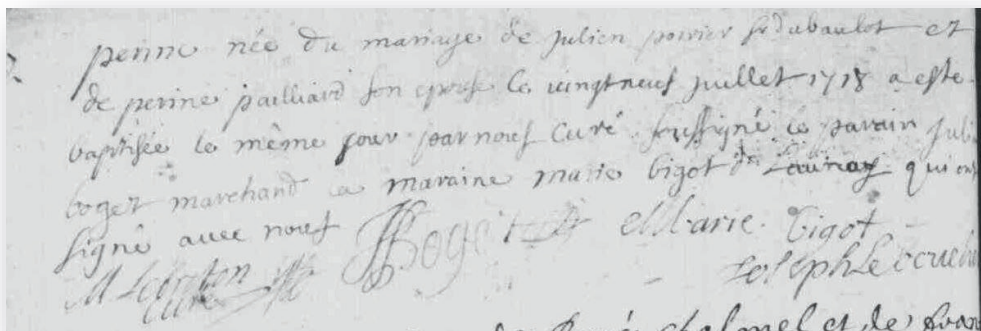 perine née du mariage de Julien poirier sr dubaulot et
de perine pailliard son epouse le vingt neuf juillet 1718 a este
baptisée le même jour par nous Curé soussigné le parain Juli
boget marchand la maraine marie bigot du Launay qui on
signé avec nous
JBoget Marie bigot
curé Joseph
Chalmel et de fran